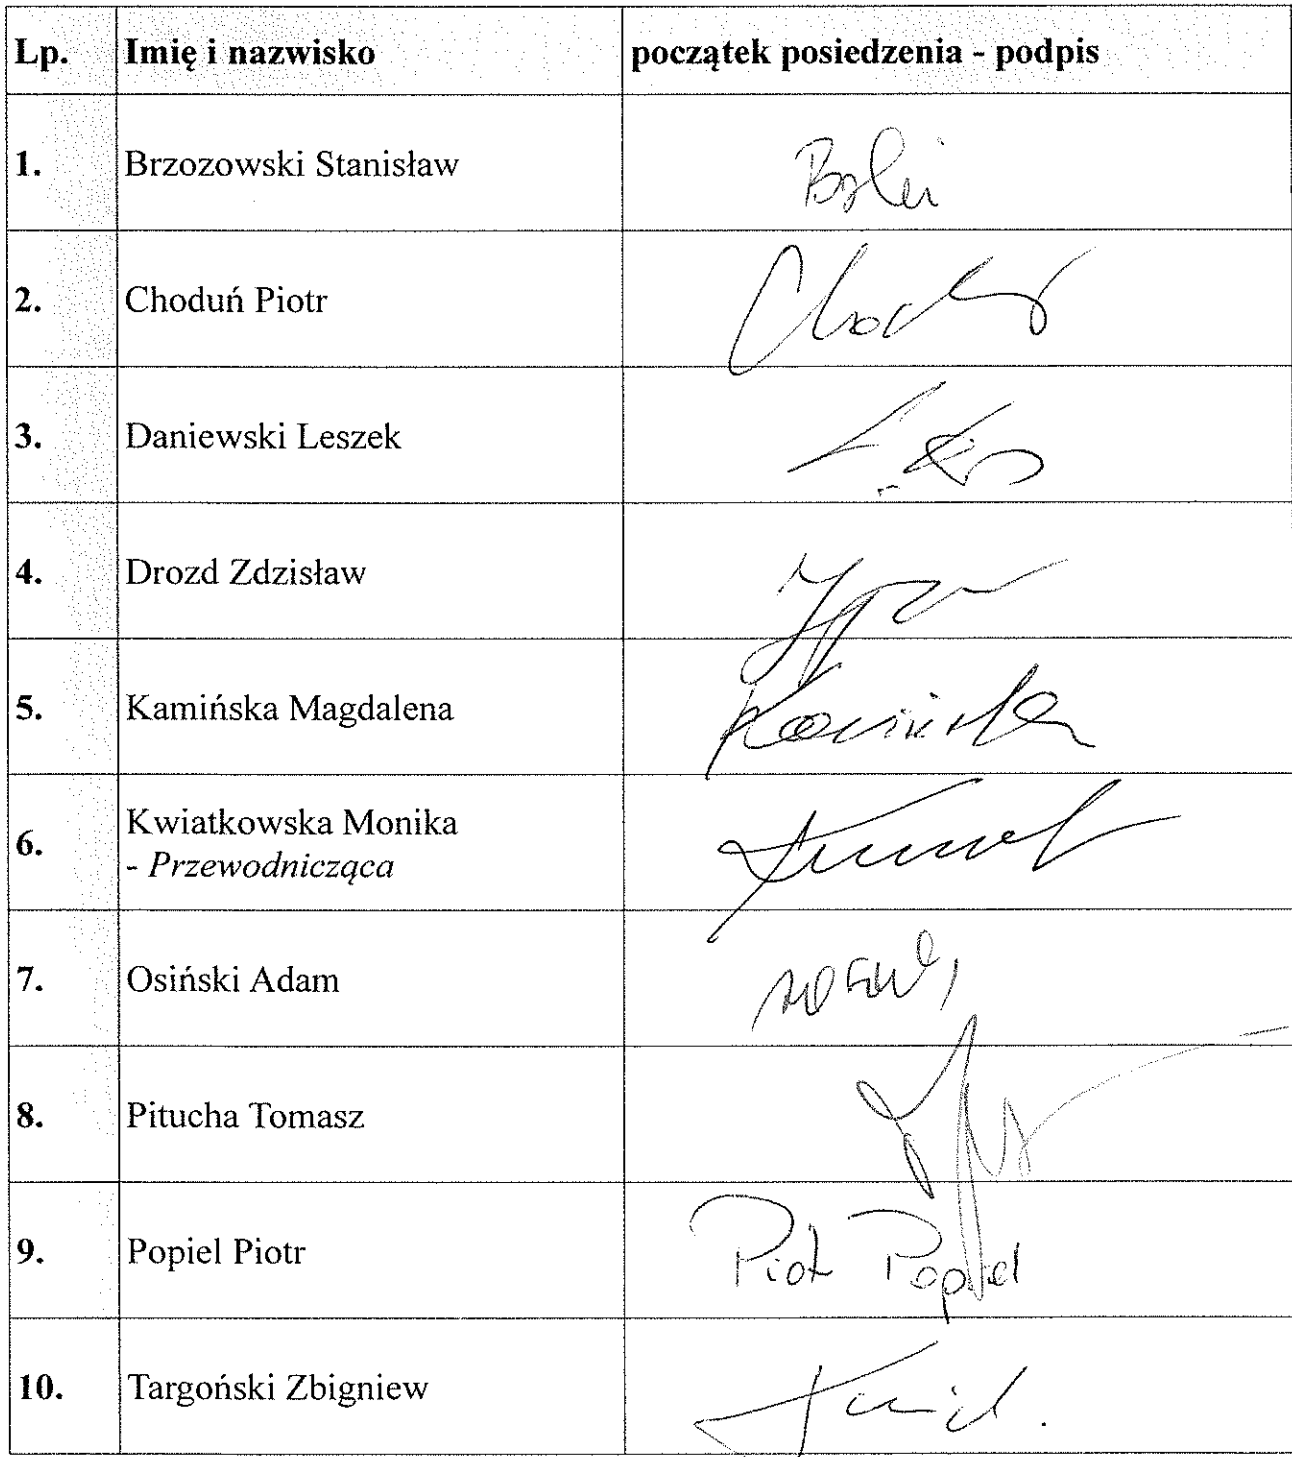 Lp. Imię i nazwisko początek posiedzenia - podpis
1. Brzozowski Stanisław
2. Choduń Piotr
3. Daniewski Leszek
4. Drozd Zdzisław
5. Kamińska Magdalena Kamińska
6. Kwiatkowska Monika
- Przewodnicząca
7. Osiński Adam
8. Pitucha Tomasz
9. Popiel Piotr Piotr Popiel
10. Targoński Zbigniew